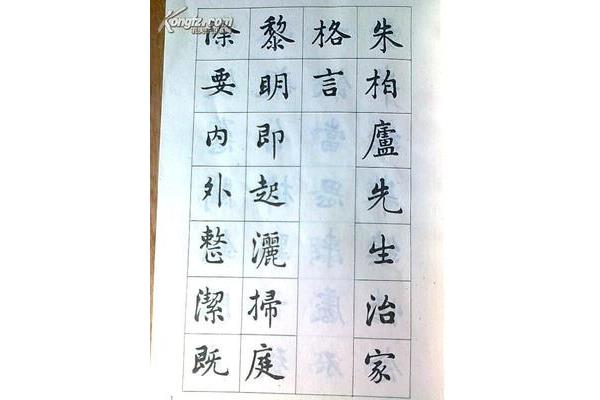 朱柏廬先生治家
格言
黎明即起灑掃庭
除要内外整潔既
Kongfz.com